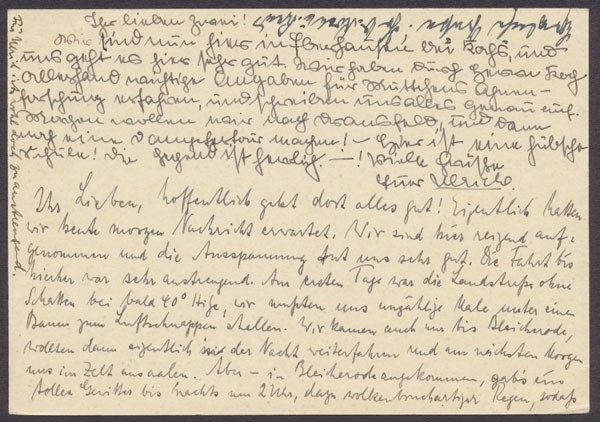 Ihr lieben zwei!
Wir sind nun hier in bei Kochs, und
uns geht es hier sehr gut. Wir haben durch Herrn Koch
allerhand wichtige Angaben für Muttchens Ahnen-
forschung erfahren, und schreiben uns alles genau auf.
Morgen wollen wir nach Dransfeld, und dann
noch eine Dampfertour machen! – Hier ist eine hübsche
Schule! Die Gegend ist herrlich. –! Viele Grüße
Euer Ulrich.
Ihr Lieben, hoffentlich geht dort alles gut! Eigentlich hatten
wir heute morgen Nachricht erwartet. Wir sind hier reizend auf-
genommen und die Ausspannung tut uns sehr gut. Die Fahrt bis
hierher war sehr anstrengend. Am ersten Tage war die Landstraße ohne
Schatten bei bald 40° Hitze, wir mußten uns unzählige Male unter einen
Baum zum Luftschnappen stellen. Wir kamen auch nur bis Bleicherode,
wollten dann eigentlich in der Nacht weiterfahren und am nächsten Morgen
uns im Zelt ausaalen. Aber – in Bleicherode angekommen, gab's ein
tolles Gewitter bis nachts um 2 Uhr, dazu wolkenbruchartiger Regen, sodaß
Für Ulrich ist's wohl noch zu anstrengend.